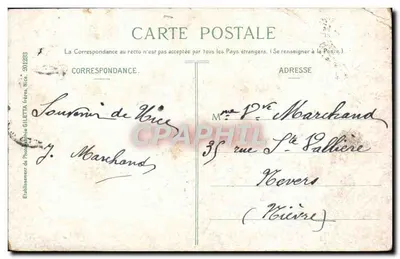 CARTE POSTALE
La Correspondance au recto n'est pas acceptée par tous les Pays étrangers. (Se renseigner à la Poste.)
CORRESPONDANCE.
ADRESSE
Souvenir de Nice
J. Marchand
Mme Vve Marchand
35 rue Ste Vallière
Nevers
(Nièvre)
CPHPRIX.COM
GILETTA frères, Nice.